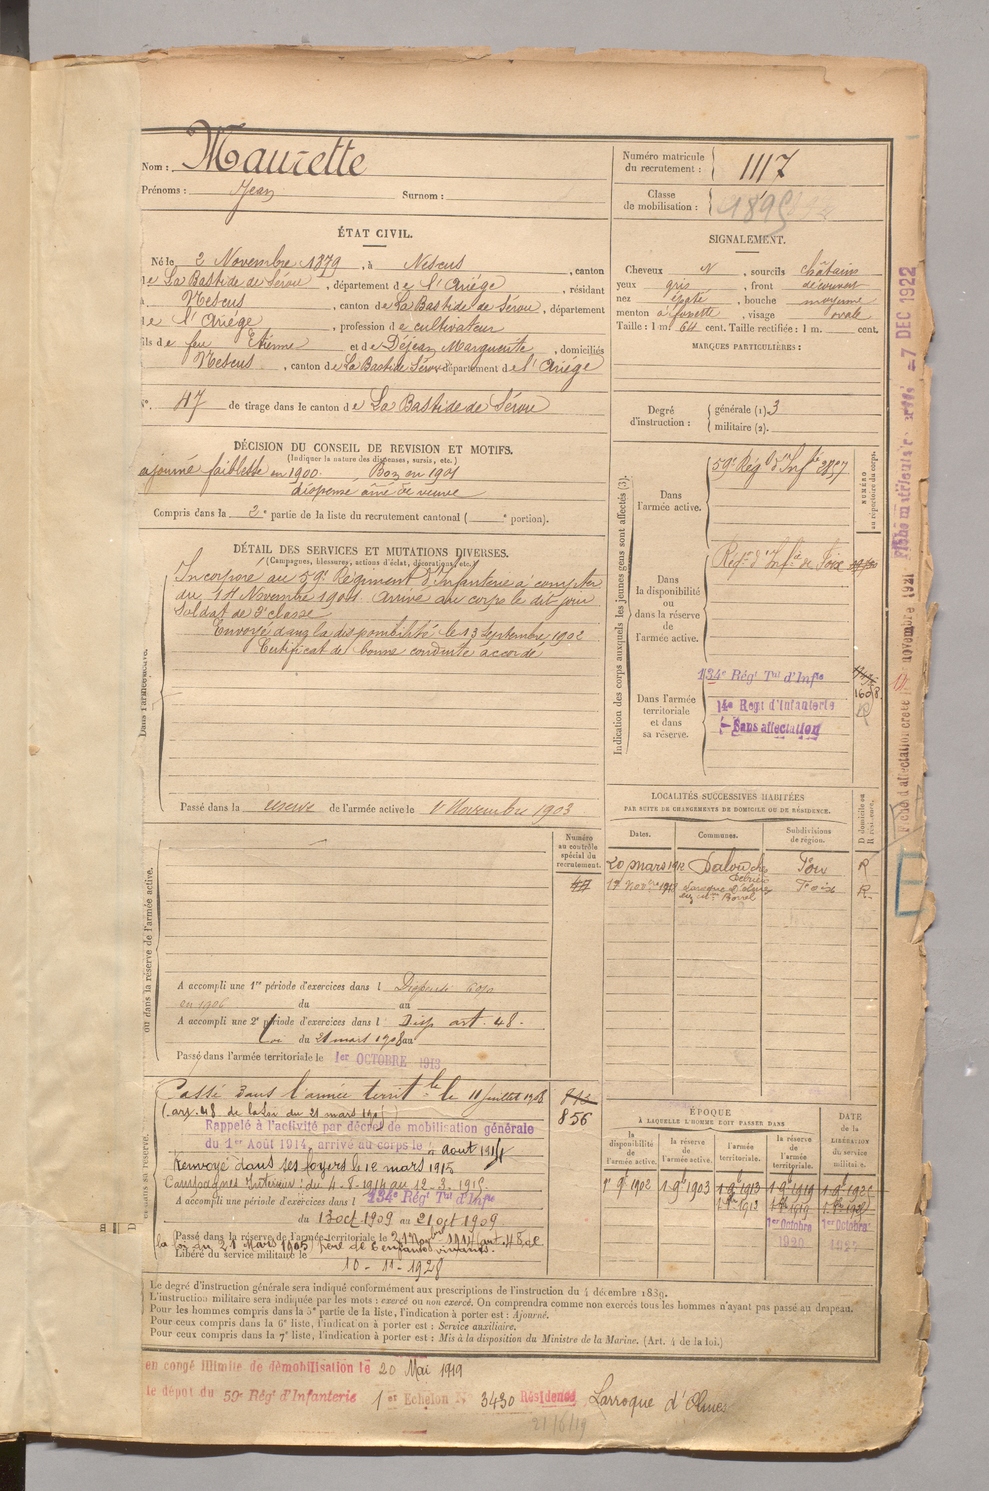 Nom : Maurette
Prénoms : Jean Surnom :
ÉTAT CIVIL.
Né le 2 Novembre 1879, à Nescus, canton
de La Bastide de Sérou, département de l'Ariège, résidant
à Nescus, canton de La Bastide de Sérou, département
de l'Ariége, profession de cultivateur
fils de feu Etienne et de Déjean Marguerite, domiciliés
Nescus, canton de La Bastide Sérou département de l'Ariège
N°. 47 de tirage dans le canton de La Bastide de Sérou
DÉCISION DU CONSEIL DE REVISION ET MOTIFS.
(Indiquer la nature des dispenses, sursis, etc.)
ajourné faiblesse en 1900. Bon en 1901
dispensé aîné de veuve
Compris dans la 2e partie de la liste du recrutement cantonal ( e portion).
DÉTAIL DES SERVICES ET MUTATIONS DIVERSES.
(Campagnes, blessures, actions d'éclat, décorations, etc.)
Dans l'armée active.
Incorporé au 59e Régiment d'Infanterie à compter
du 14 Novembre 1901 Arrivé au corps le dit jour
Soldat de 2e classe
Envoyé dans la disponibilité le 13 Septembre 1902
Certificat de bonne conduite accordé
Passé dans la réserve de l'armée active le 1 Novembre 1903
ou dans la réserve de l'armée active.
Numéro
au contrôle
spécial du
recrutement.
A accompli une 1re période d'exercices dans l Dispensé
en 1906 du au
A accompli une 2e période d'exercices dans l Disp art. 48.
Loi du 21 mars 1905 au
Passé dans l'armée territoriale le 1er OCTOBRE 1913
Passé dans l'armée territ le le 11 juillet 1908
(art. 48 de la Loi du 21 mars 1905)
856
Rappelé à l'activité par décret de mobilisation générale
du 1er Août 1914, arrivé au corps le 4 août 1914
Renvoyé dans ses foyers le 12 mars 1915
Campagnes Intérieur : du 4-8-1914 au 12-3-1915
A accompli une période d'exercices dans l 134e Régt Tal d'Infie
du 13 oct 1909 au 21 oct 1909
Passé dans la réserve de l'armée territoriale le 21 Nov 1914 (art. 48 de
la loi du 21 Mars 1905) père de 6 enfants vivants.
Libéré du service militaire le
10-11-1928
Numéro matricule
du recrutement : 1117
Classe
de mobilisation : 1895
SIGNALEMENT.
Cheveux N, sourcils châtains
yeux gris, front découvert
nez, bouche moyenne
menton à fossette, visage ovale
Taille : 1 m. 64 cent. Taille rectifiée : 1 m. cent.
MARQUES PARTICULIÈRES :
Degré
d'instruction :
générale (1) 3
militaire (2).
Indication des corps auxquels les jeunes gens sont affectés (3).
NUMÉRO
au répertoire du corps.
Dans
l'armée active.
59e Rég d'Infie 2857
Dans
la disponibilité
ou
dans la réserve
de
l'armée active.
Régt d'Infie de Foix
Dans l'armée
territoriale
et dans
sa réserve.
134e Régt Tal d'Infie
14e Regt d'Infanterie
Sans affectation
LOCALITÉS SUCCESSIVES HABITÉES
PAR SUITE DE CHANGEMENTS DE DOMICILE OU DE RÉSIDENCE.
Dates. Communes. Subdivisions
de région. D. domicile ou
R. résidence.
20 mars 1912 Dalou Foix R
Laroque d'Olmes Foix R
ÉPOQUE
À LAQUELLE L'HOMME DOIT PASSER DANS
DATE
de la
LIBÉRATION
du service
militaire.
la
disponibilité
de
l'armée active.
la réserve
de
l'armée active.
l'armée
territoriale.
la réserve
de
l'armée
territoriale.
1er 9e 1902 1 9e 1903 1 9e 1913 1 9e 1919
1er Octobre 1er Octobre
1920
Le degré d'instruction générale sera indiqué conformément aux prescriptions de l'instruction du 4 décembre 1889.
L'instruction militaire sera indiquée par les mots : exercé ou non exercé. On comprendra comme non exercés tous les hommes n'ayant pas passé au drapeau.
Pour les hommes compris dans la 5e partie de la liste, l'indication à porter est : Ajourné.
Pour ceux compris dans la 6e liste, l'indication à porter est : Service auxiliaire.
Pour ceux compris dans la 7e liste, l'indication à porter est : Mis à la disposition du Ministre de la Marine. (Art. 4 de la loi.)
en congé illimité de démobilisation le 20 Mai 1919
le dépôt du 59e Régt d'Infanterie 1er Echelon N° 3430 Résidence Larroque d'Olmes
21/6/19
7 DEC 1922